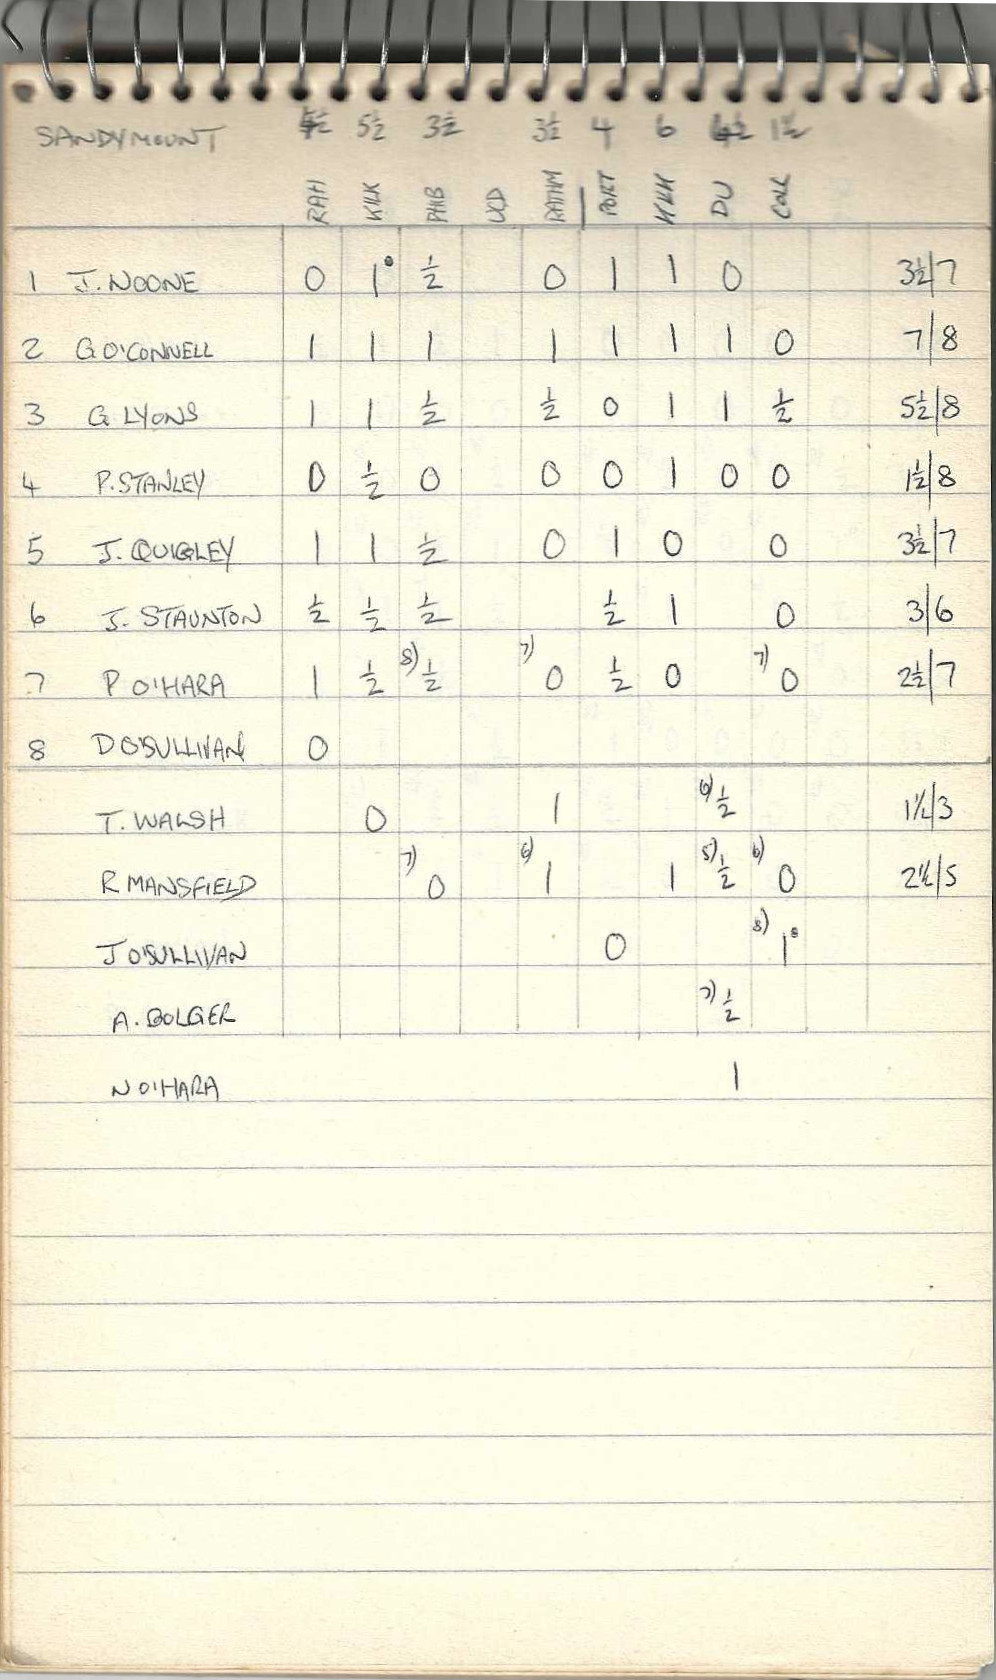 SANDYMOUNT 4½ 5½ 3½ 3½ 4 6 4½ 1½
RAH KILK PHIB UCD RATHM PORT KILK DU COLL
1 J. NOONE 0 1° ½ 0 1 1 0 3½/7
2 G O'CONNELL 1 1 1 1 1 1 1 0 7/8
3 G LYONS 1 1 ½ ½ 0 1 1 ½ 5½/8
4 P. STANLEY 0 ½ 0 0 0 1 0 0 1½/8
5 J. QUIGLEY 1 1 ½ 0 1 0 0 3½/7
6 J. STAUNTON ½ ½ ½ ½ 1 0 3/6
7 P O'HARA 1 ½ 8) ½ 7) 0 ½ 0 7) 0 2½/7
8 D O'SULLIVAN 0
T. WALSH 0 1 6) ½ 1½/3
R MANSFIELD 7) 0 6) 1 1 5) ½ 6) 0 2½/5
J O'SULLIVAN 0 8) 1°
A. BOLGER 7) ½
N O'HARA 1